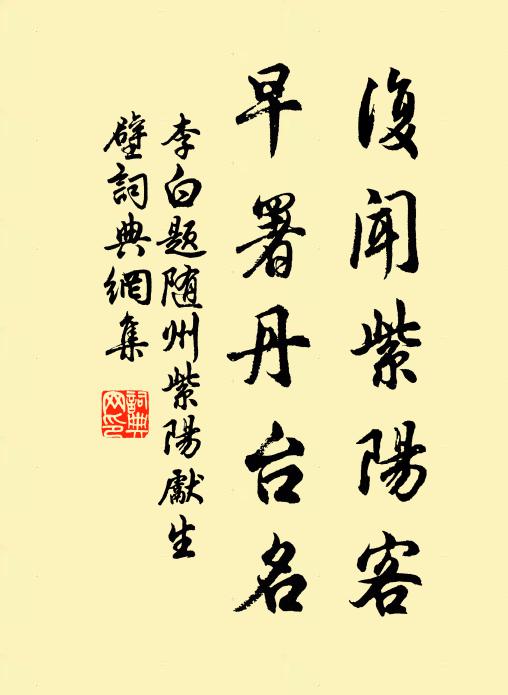 復聞紫陽客
早署丹台名
李白题随州紫陽獻生
壁詞典網集
詞典
网印